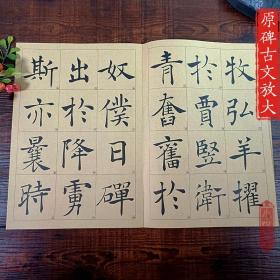 原碑古文放大
牧弘羊擢
於賈豎衛
青奮舊於
奴僕日磾
出於降虜
斯亦曩時